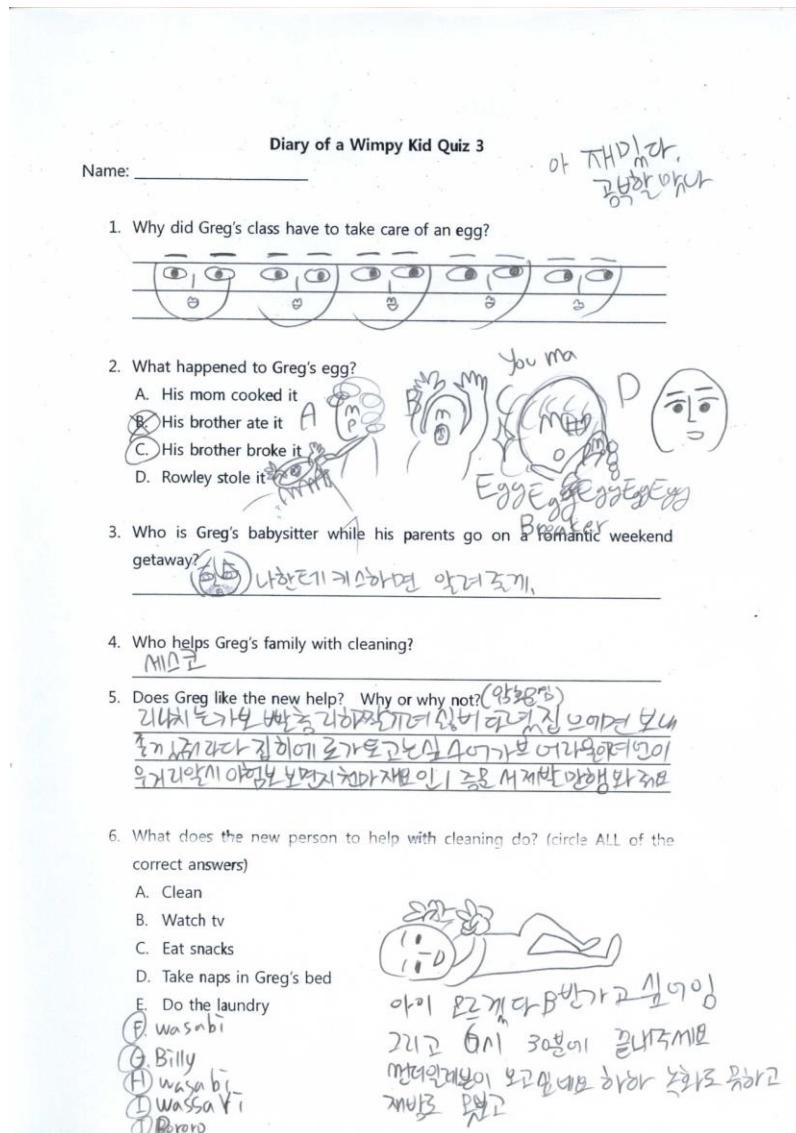 Diary of a Wimpy Kid Quiz 3
아 재밌다.
공부할 맛나
Name:
1. Why did Greg's class have to take care of an egg?
2. What happened to Greg's egg?
A. His mom cooked it
B. His brother ate it
C. His brother broke it
D. Rowley stole it
A
B
You ma
C
D
EggEggEggEggEggEgg
Breaker
3. Who is Greg's babysitter while his parents go on a romantic weekend
getaway?
나한테 키스하면 알려줄게.
4. Who helps Greg's family with cleaning?
세스코
5. Does Greg like the new help? Why or why not?
6. What does the new person to help with cleaning do? (circle ALL of the
correct answers)
A. Clean
B. Watch tv
C. Eat snacks
D. Take naps in Greg's bed
E. Do the laundry
F. wasabi
G. Billy
H wasabi
I wassavi
J Pororo
아이 모르겠다 B반가고 싶어잉
그리고 6시 30분에 끝내주세요
보고싶네요 하하 녹화도 못하고
재방도 못보고